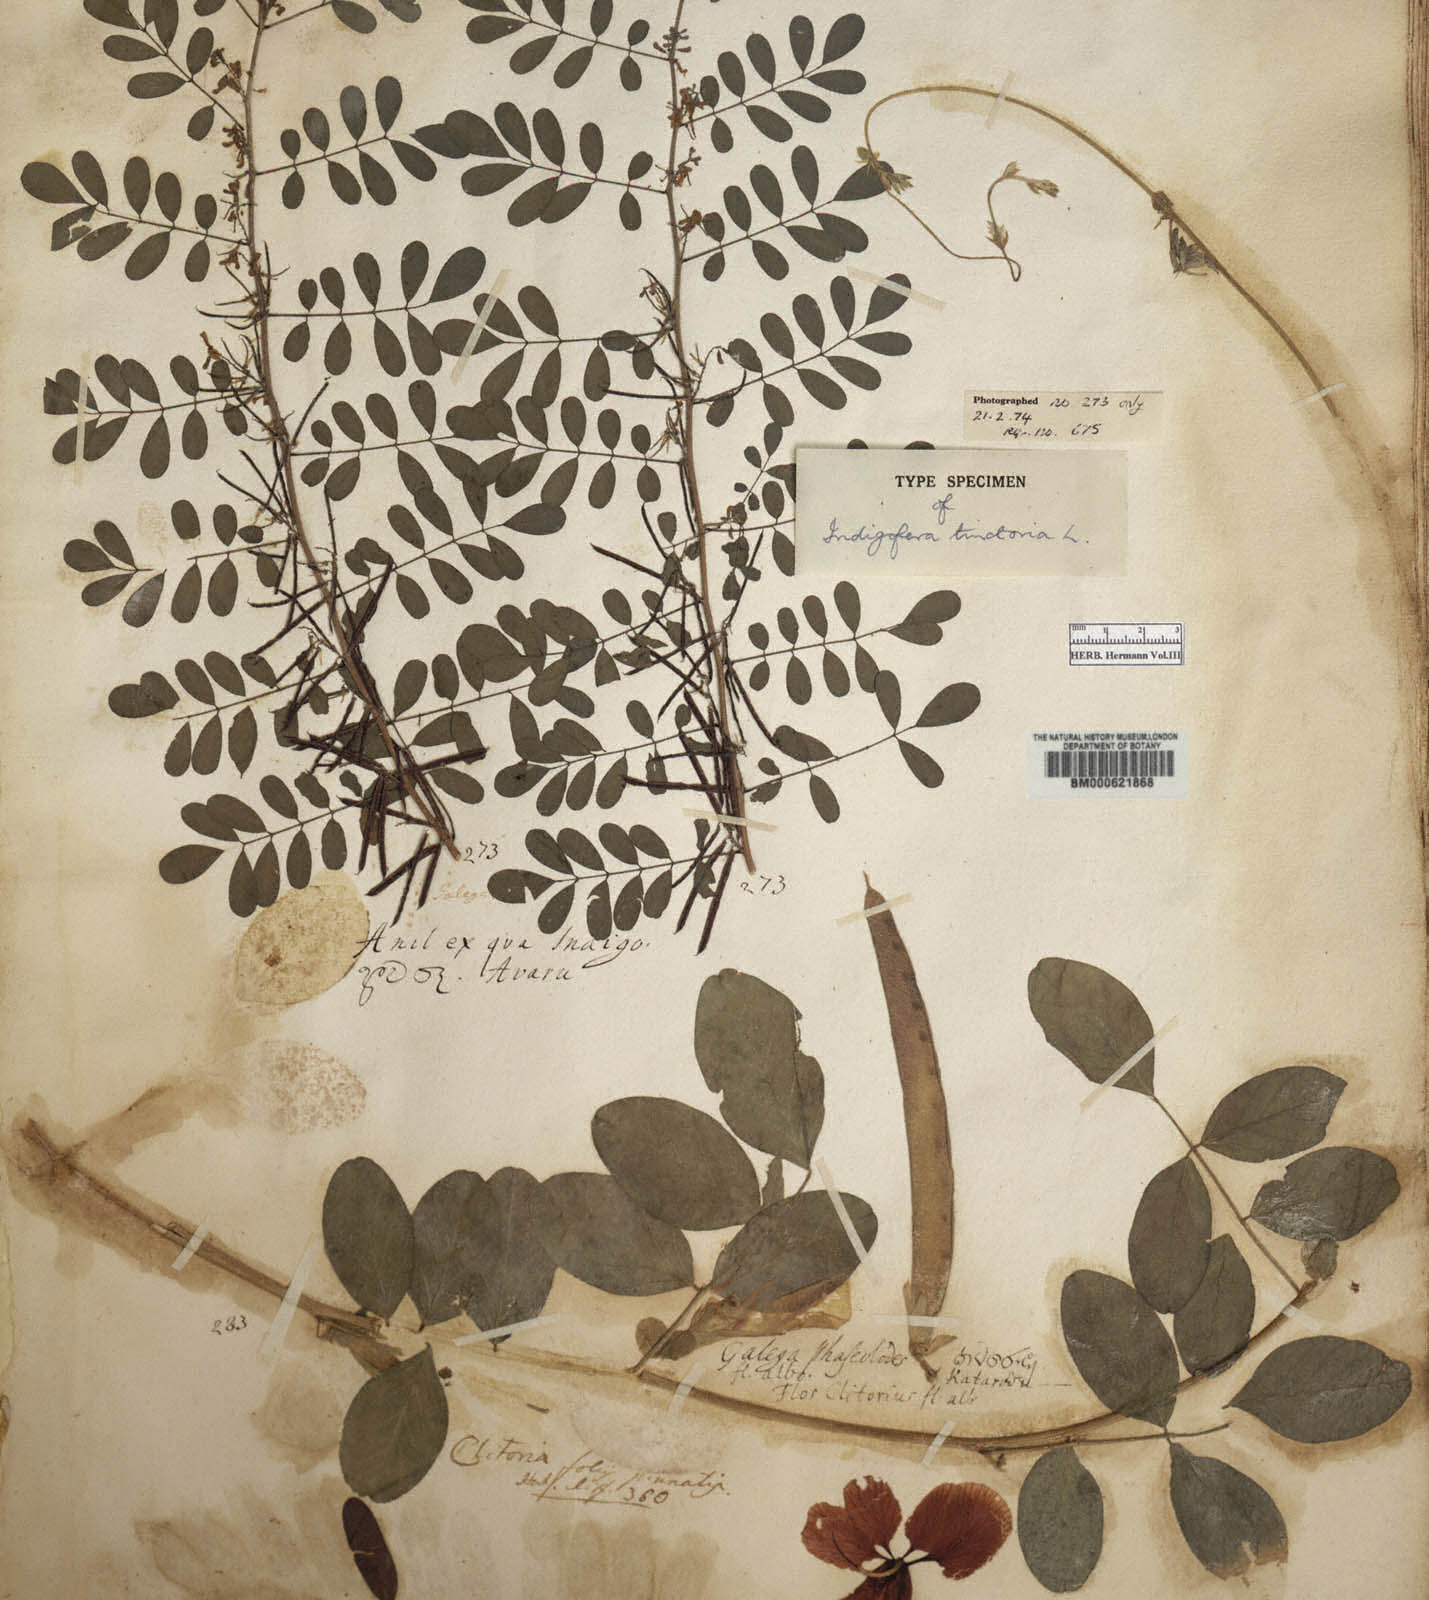 Photographed no. 273 only
21.2.74
Rgr. no. 675
TYPE SPECIMEN
of
Indigofera tinctoria L.
mm 1 2 3
HERB. Hermann Vol.III
THE NATURAL HISTORY MUSEUM, LONDON
DEPARTMENT OF BOTANY
BM000621868
273
273
Galega
Anil ex qua Indigo.
Avaru
283
Galega phaseolodes
fl. albo.
Katarodu
Flos Clitorius fl. alb
Clitoria folijs pinnatis.
360